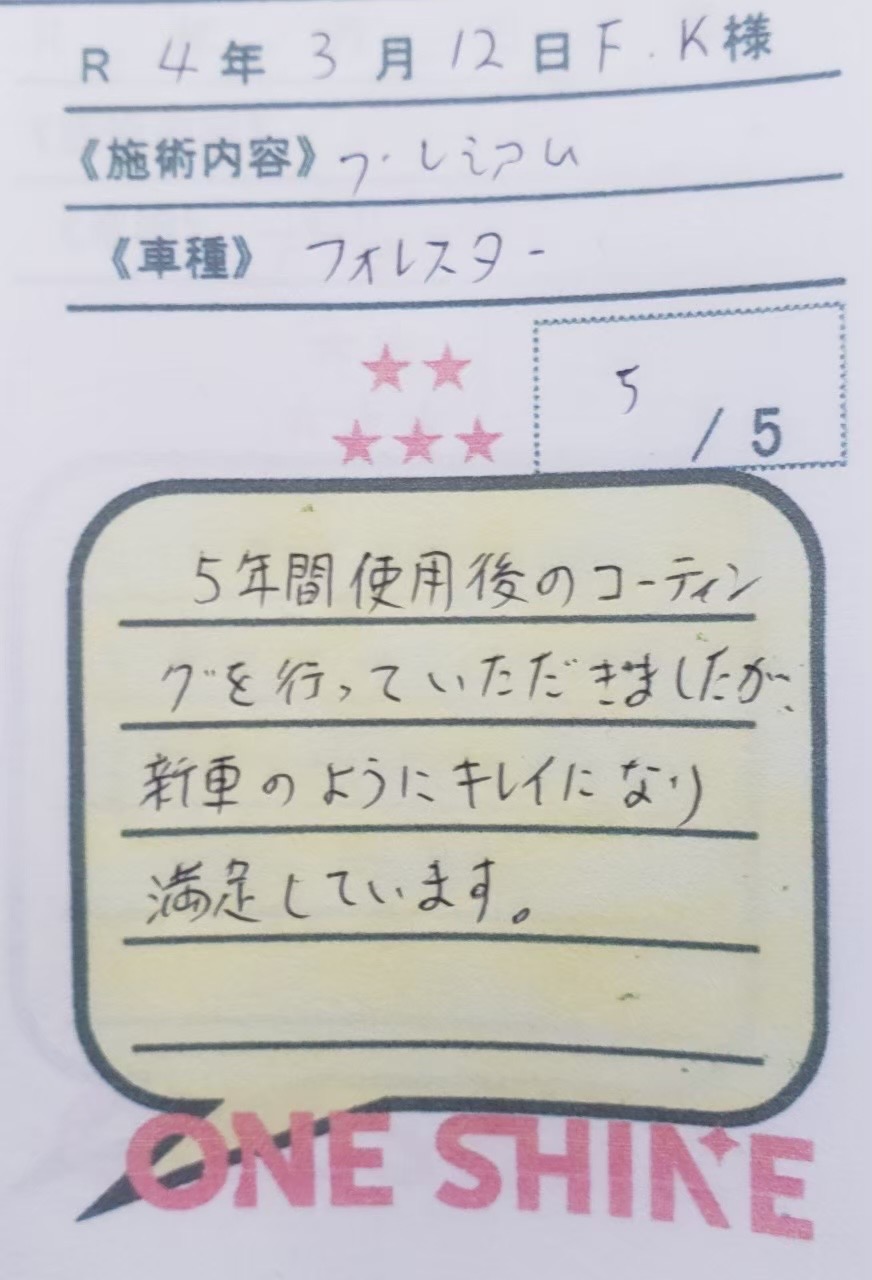 R 4年 3月 12日 F.K様
《施術内容》プレミアム
《車種》フォレスター
5 / 5
5年間使用後のコーティン
グを行っていただきましたが、
新車のようにキレイになり
満足しています。
ONE SHINE